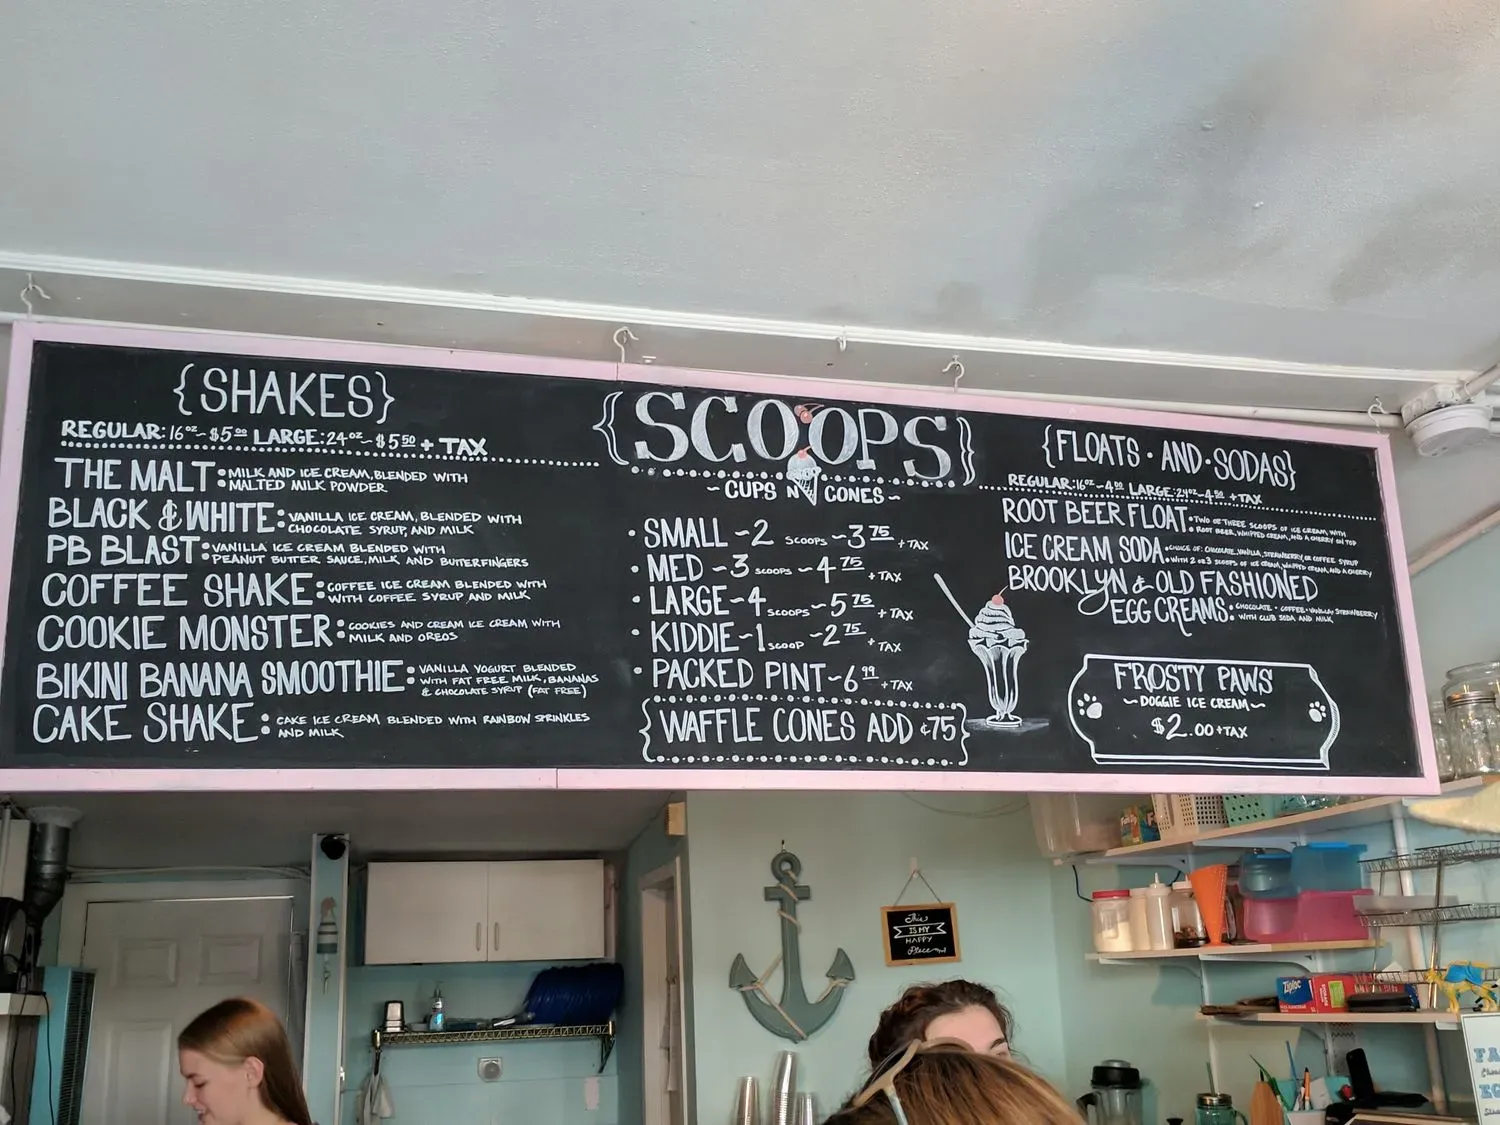 {SHAKES}
REGULAR: 16oz ~ $5.00 LARGE: 24oz ~ $5.50 + TAX
THE MALT: MILK AND ICE CREAM, BLENDED WITH
MALTED MILK POWDER
BLACK & WHITE: VANILLA ICE CREAM, BLENDED WITH
CHOCOLATE SYRUP, AND MILK
PB BLAST: VANILLA ICE CREAM BLENDED WITH
PEANUT BUTTER SAUCE, MILK AND BUTTERFINGERS
COFFEE SHAKE: COFFEE ICE CREAM BLENDED WITH
WITH COFFEE SYRUP AND MILK
COOKIE MONSTER: COOKIES AND CREAM ICE CREAM WITH
MILK AND OREOS
BIKINI BANANA SMOOTHIE: VANILLA YOGURT BLENDED
WITH FAT FREE MILK, BANANAS
& CHOCOLATE SYRUP (FAT FREE)
CAKE SHAKE: CAKE ICE CREAM BLENDED WITH RAINBOW SPRINKLES
AND MILK
{SCOOPS}
~ CUPS N CONES ~
• SMALL ~ 2 SCOOPS ~ 3.75 + TAX
• MED ~ 3 SCOOPS ~ 4.75 + TAX
• LARGE ~ 4 SCOOPS ~ 5.75 + TAX
• KIDDIE ~ 1 SCOOP ~ 2.75 + TAX
• PACKED PINT ~ 6.99 + TAX
{WAFFLE CONES ADD ¢75}
{FLOATS · AND · SODAS}
REGULAR: 16oz ~ 4.00 LARGE: 24oz ~ 4.50 + TAX
ROOT BEER FLOAT: TWO OR THREE SCOOPS OF ICE CREAM, WITH
ROOT BEER, WHIPPED CREAM, AND A CHERRY ON TOP
ICE CREAM SODA: CHOICE OF: CHOCOLATE, VANILLA, STRAWBERRY, OR COFFEE SYRUP
WITH 2 OR 3 SCOOPS OF ICE CREAM, WHIPPED CREAM, AND A CHERRY
BROOKLYN & OLD FASHIONED
EGG CREAMS: CHOCOLATE · COFFEE · VANILLA, STRAWBERRY
WITH CLUB SODA AND MILK
FROSTY PAWS
~ DOGGIE ICE CREAM ~
$2.00 + TAX
This
IS MY
HAPPY
Place
Ziploc